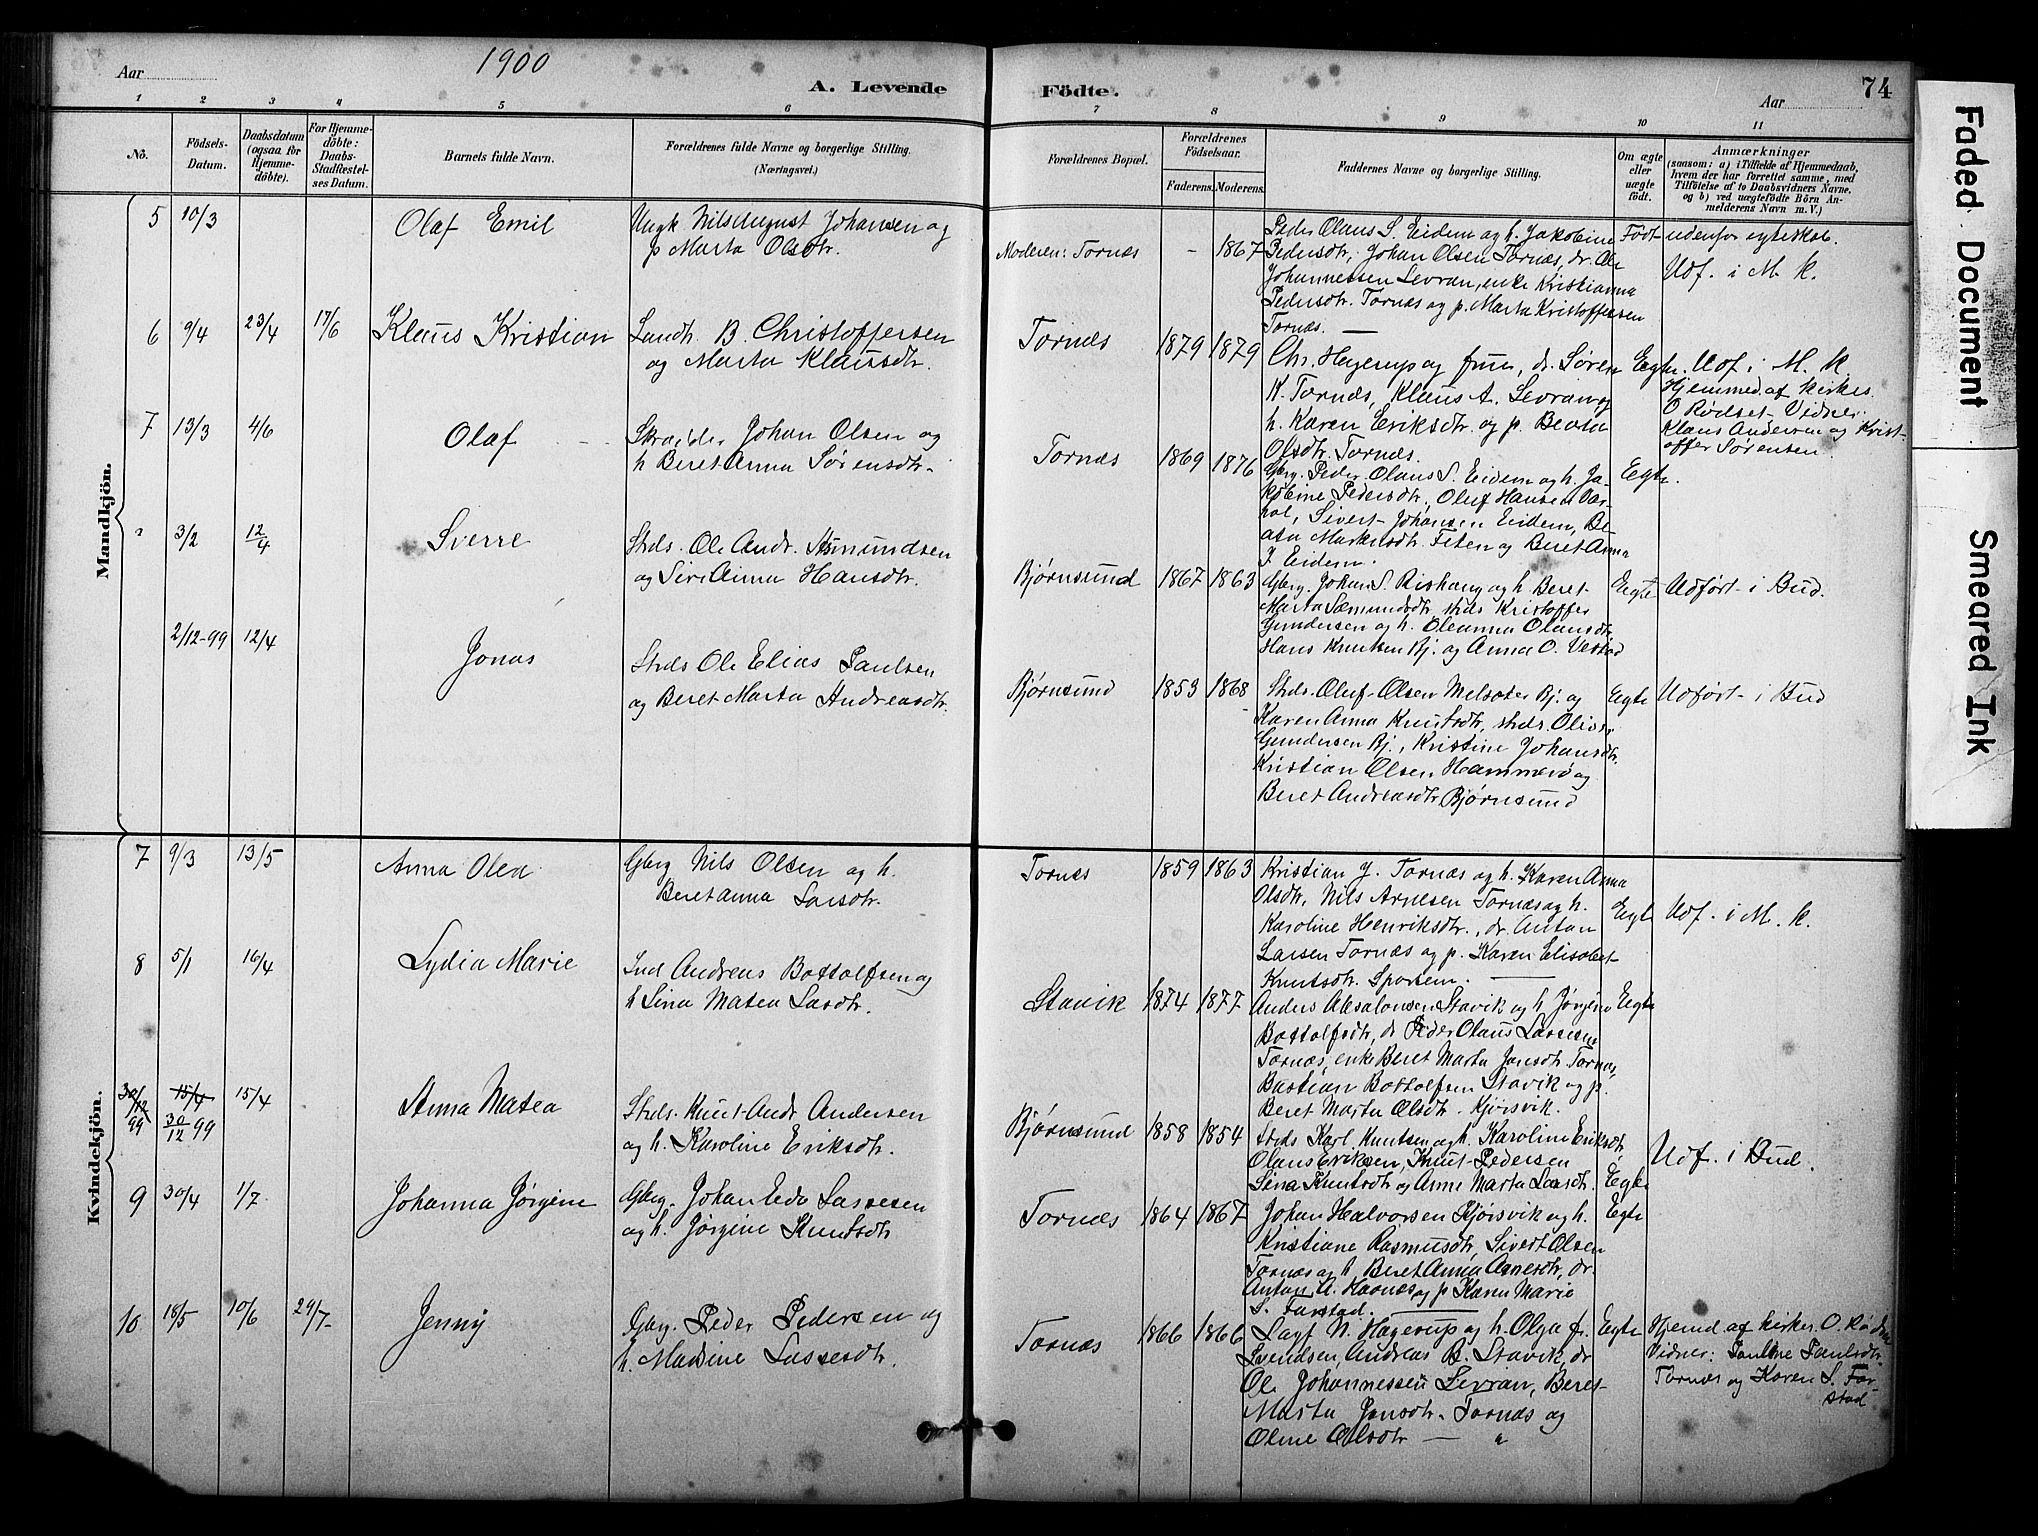 Aar
1900
A. Levende
1 2 3 4 5 6
No.
Födsels-
Datum.
Daabsdatum
(ogsaa for
Hjemme-
döbte).
For Hjemme-
döbte:
Daabs-
Stadfæstel-
ses Datum.
Barnets fulde Navn.
Forældrenes fulde Navne og borgerlige Stilling.
(Næringsvei.)
Mandkjön.
5 10/3 Olaf Emil
Ungk Nils August Johansen og
p Marta Olsdtr.
6 9/4 23/4 17/6 Klaus Kristian
Landh. B. Christoffersen
og Marta Klausdtr.
7 13/3 4/6 Olaf
Skræder Johan Olsen og
h Beret Anna Sørensdtr.
" 3/2 12/4 Sverre
Strds. Ole Andr. Asmundsen
og Siri Anna Hansdtr.
2/12-99 12/4 Jonas
Strds Ole Elias Paulsen
og Beret Marta Andreasdtr.
Kvindekjön.
7 9/3 13/5 Anna Olea
Gbrg Nils Olsen og h.
Beret Anna Larsdtr.
8 5/1 16/4 Lydia Marie
Ind Andreas Bottolfsen og
h Sina Matea Lasdtr.
30/12 99 15/4 30/12 99 15/4 Anna Matea
Strds. Knut Andr Andersen
og h. Karoline Eriksdtr.
9 30/4 1/7 Johanna Jørgine
Gbrg. Johan Edv Lassesen
og h. Jørgine Knutsdtr
10 18/5 10/6 29/7 Jenny
Gbrg. Peder Pedersen og
h. Madsine Lassesdtr.
Födte.
Aar
74
7 8 9 10 11
Forældrenes Bopæl.
Forældrenes
Födselsaar.
Faderens. Moderens.
Faddernes Navne og borgerlige Stilling.
Om ægte
eller
uægte
födt.
Anmærkninger
(saasom: a) i Tilfælde af Hjemmedaab,
hvem der har forrettet samme, med
Tilföielse af to Daabsvidners Navne.
og b) ved uægtefödte Börn An-
melderens Navn m. V.)
Moderen: Tornes - 1867
Peder Olaus S. Eidem og h. Jakobine
Pedersdtr, Johan Olsen Tornes, dr. Ole
Johannessen Levran, enke Kristianna
Pedersdtr. Tornes og p. Marta Kristoffersen
Tornes.
Født udenfor egteskab.
Udf. i M. k.
Tornes 1879 1879
Chr. Hagerup og frue, dr. Søren
K. Tornes, Klaus A. Levran og
h. Karen Eriksdtr. og p. Beata
Olsdtr. Tornes.
Egte. Udf. i M. k.
Hjemmed. af kirkes.
O Rødset. Vidner:
Klaus Andersen og Krist-
offer Sørensen.
Tornes 1869 1876
Gbrg. Peder Olaus S. Eidem og h. Ja-
kobine Pedersdtr, Oluf Hansen Var-
hol, Sivert Johansen Eidem, Be-
ata Martinsdtr. Feten og Beret Anna
J. Eidem.
Egte.
Bjørnsund 1867 1863
Gbrg. Johan S. Rishaug og h Beret
Marta Sæmundsdtr strds Kristoffer
Gundersen og h. Oleanna Olausdtr.
Hans Knutsen Bj. og Anna O. Vestad
Egte Udført i Bud.
Bjørnsund 1853 1868
Strds. Oluf Olsen Melsæter Bj. og
Karen Anna Knutsdtr, strds. Oliver
Gundersen Bj., Kristine Johansdtr.
Kristian Olsen Hammerø og
Beret Andreasdtr. Bjørnsund
Egte Udført i Bud
Tornes 1859 1863
Kristian J. Tornes og h. Karen Anna
Olsdtr, Nils Arnesen Tornes og h.
Karoline Henriksdtr., dr. Anton
Larsen Tornes og p. Karen Elisabet
Knutsdtr. Sporsem.
Egte Udf. i M. k.
Stavik 1874 1877
Anders Absalonsen Stavik og h Jørgine
Bottolfsdtr, dr Peder Olaus Lassesen
Tornes, enke Beret Marta Jansdtr. Tornes,
Bastian Bottolfsen Stavik og p.
Beret Marta Olsdtr. Kjørsvik.
Egte
Bjørnsund 1858 1854
Strds Karl Knutsen og h. Karoline Eriksdtr,
Olaus Eriksen, Knut Pedersen
Sina Knutsdtr og Anne Marta Larsdtr.
Egte Udf. i Bud.
Tornes 1864 1867
Johan Halvorsen Kjørsvik og h.
Kristiane Rasmusdtr, Sivert Olsen
Tornes og h Beret Anna Arnesdtr, dr.
Anton A. Hornes og p Karen Marie
S. Farstad.
Egte
Tornes 1866 1866
Lagf N. Hagerup og h. Olga f.
Svendsen, Andreas B. Stavik, dr
Ole Johannessen Levran, Beret
Marta Jonsdtr. Tornes og
Oline Olsdtr — "
Egte Hjemd. af kirkes. O. Rødset
Vidner: Pauline Paulsdtr.
Tornes og Karen S. Far-
stad
Faded Document
Smeared Ink